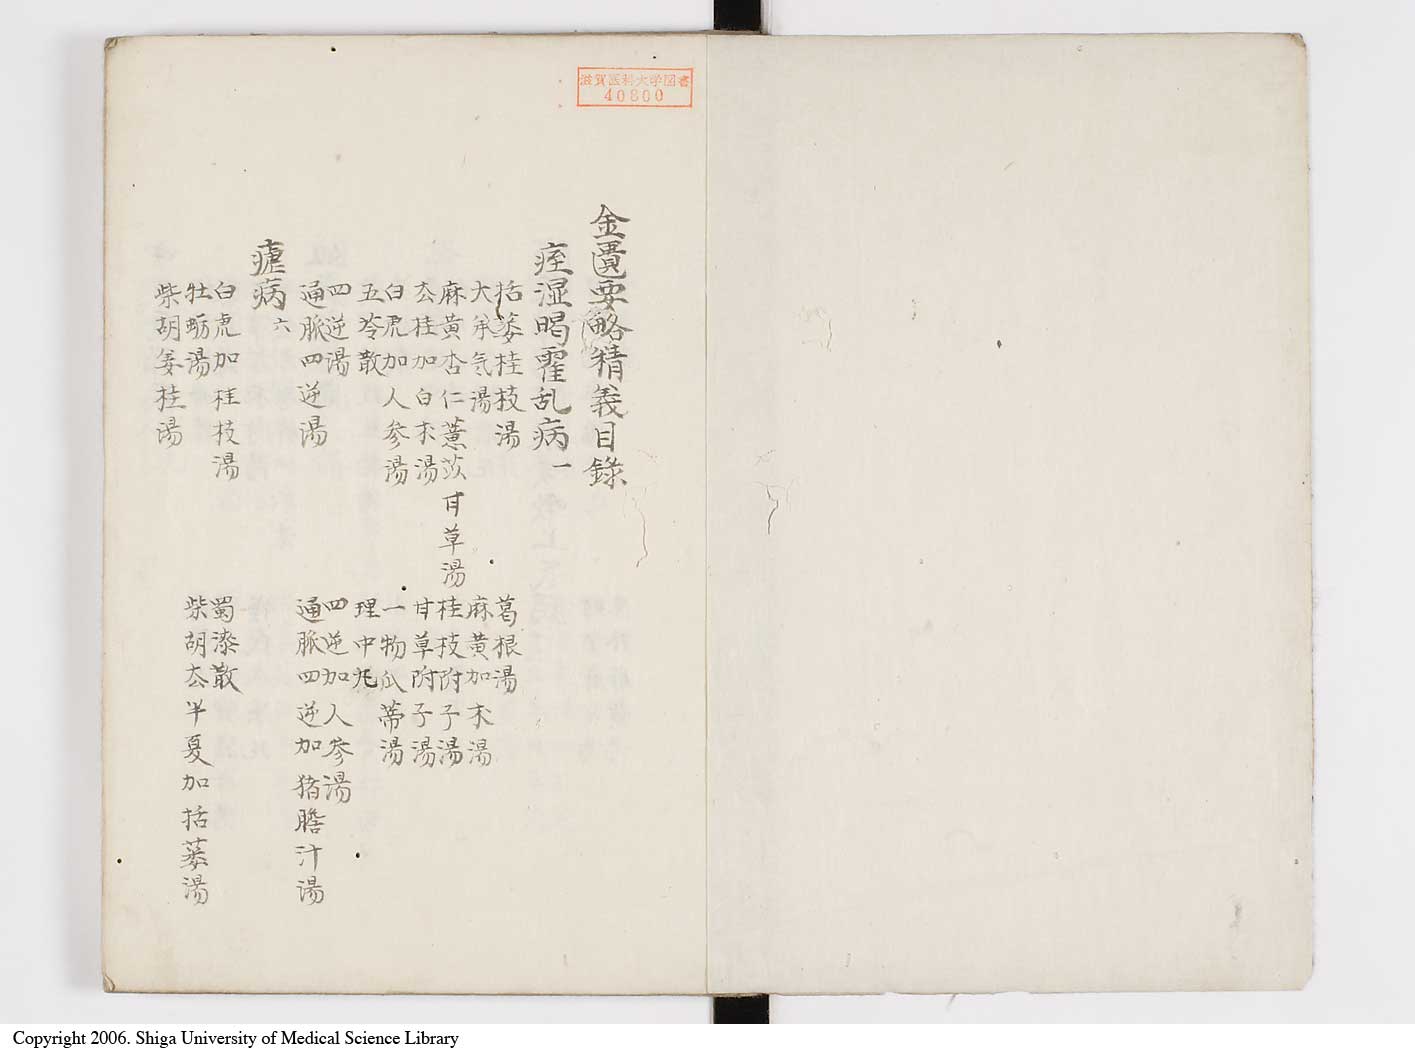 滋賀医科大学図書
40800
金匱要略精義目錄
痓湿暍霍乱病一
括蔞桂枝湯
葛根湯
大承気湯
麻黄加朮湯
麻黄杏仁薏苡甘草湯
桂枝附子湯
去桂加白朮湯
甘草附子湯
白虎加人参湯
一物瓜蒂湯
五苓散
理中丸
四逆湯
四逆加人参湯
通脈四逆湯
通脈四逆加猪膽汁湯
瘧病六
白虎加桂枝湯
蜀漆散
牡蛎湯
柴胡去半夏加括蔞湯
柴胡姜桂湯
Copyright 2006. Shiga University of Medical Science Library